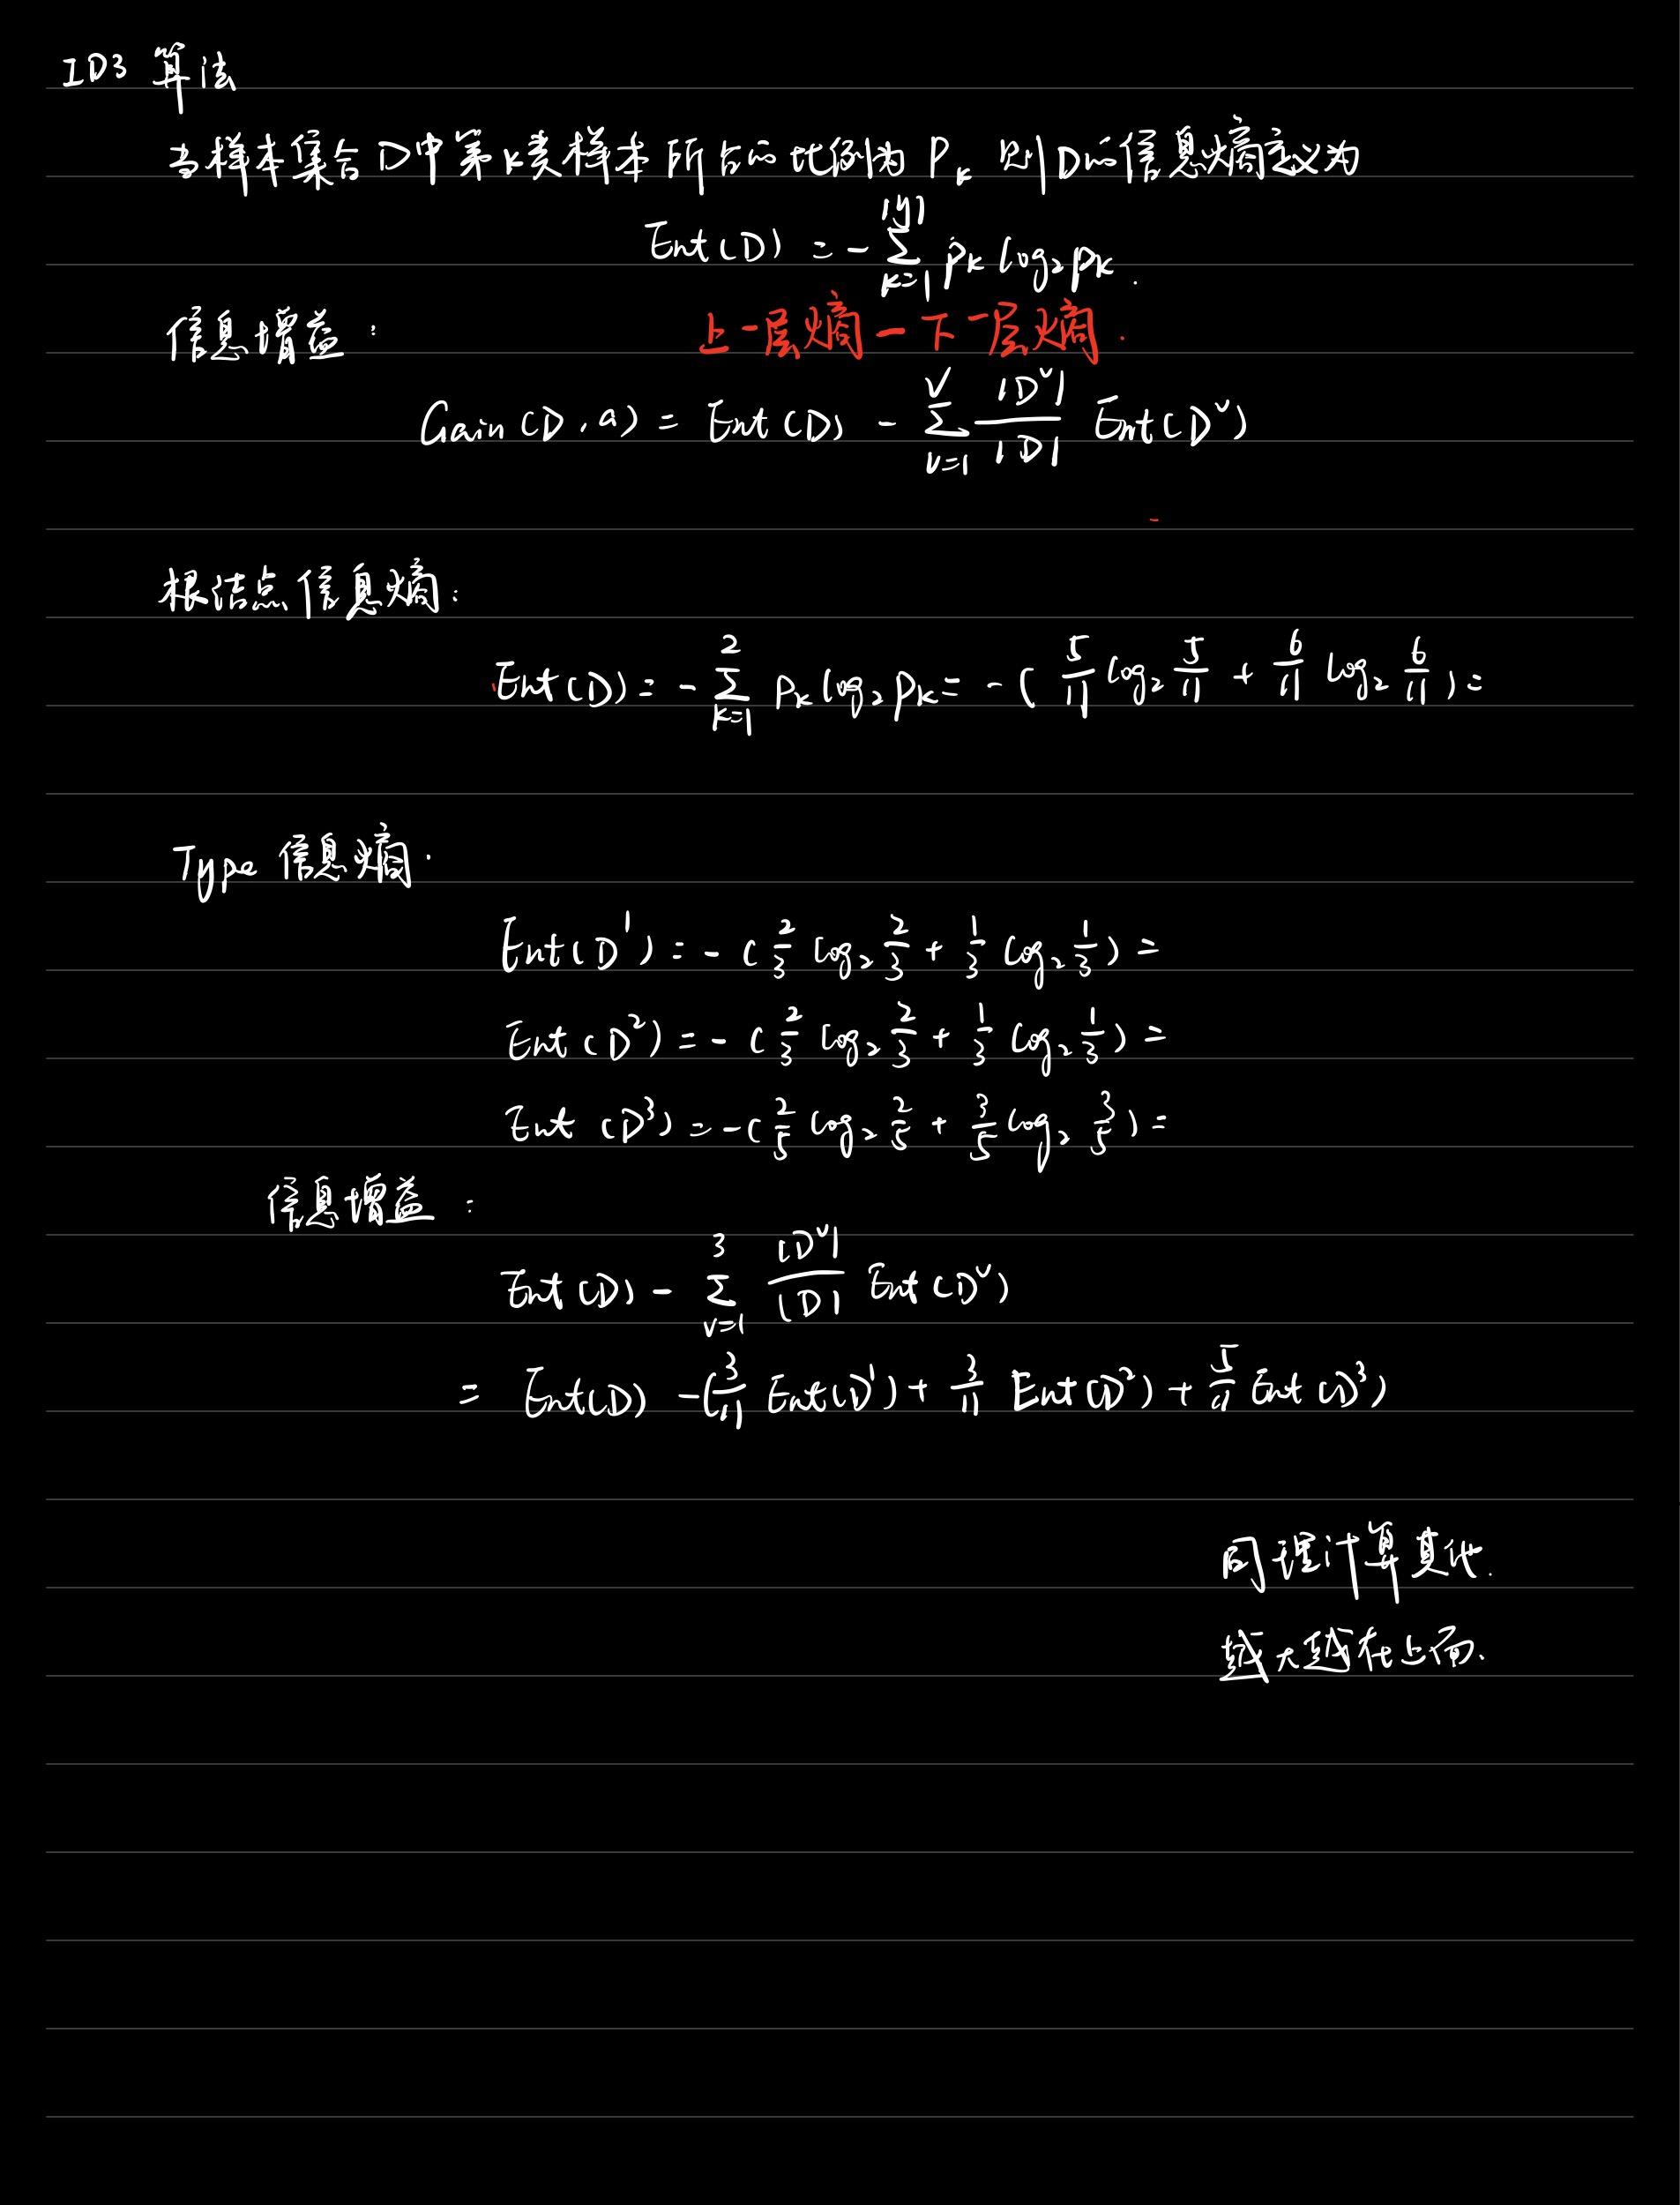 ID3 算法
当样本集合D中第k类样本所占的比例为 Pk 则D的信息熵定义为
Ent(D) = -∑_{k=1}^{|y|} Pk log₂Pk.
信息增益：
上一层熵 - 下一层熵.
Gain(D,a) = Ent(D) - ∑_{v=1}^{V} |D^v|/|D| Ent(D^v)
根结点信息熵：
Ent(D) = -∑_{k=1}^{2} Pk log₂Pk = -( 5/11 log₂ 5/11 + 6/11 log₂ 6/11 ) =
Type 信息熵.
Ent(D¹) = -( 2/3 log₂ 2/3 + 1/3 log₂ 1/3 ) =
Ent(D²) = -( 2/3 log₂ 2/3 + 1/3 log₂ 1/3 ) =
Ent(D³) = -( 2/5 log₂ 2/5 + 3/5 log₂ 3/5 ) =
信息增益：
Ent(D) - ∑_{v=1}^{3} |D^v|/|D| Ent(D^v)
= Ent(D) - ( 3/11 Ent(D¹) + 3/11 Ent(D²) + 5/11 Ent(D³)
同理计算其他.
越大越在上面.